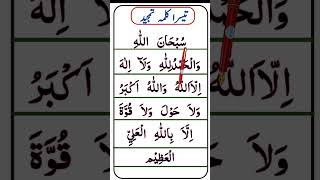 تیسرا کلمہ تمجید
سُبْحَانَ اللّٰهِ
وَالْحَمْدُلِلّٰهِ وَلَآ اِلٰهَ
اِلَّااللّٰهُ وَاللّٰهُ اَكْبَرُ
وَلَا حَوْلَ وَلَا قُوَّةَ
اِلَّا بِاللّٰهِ الْعَلِیِّ
الْعَظِیْم